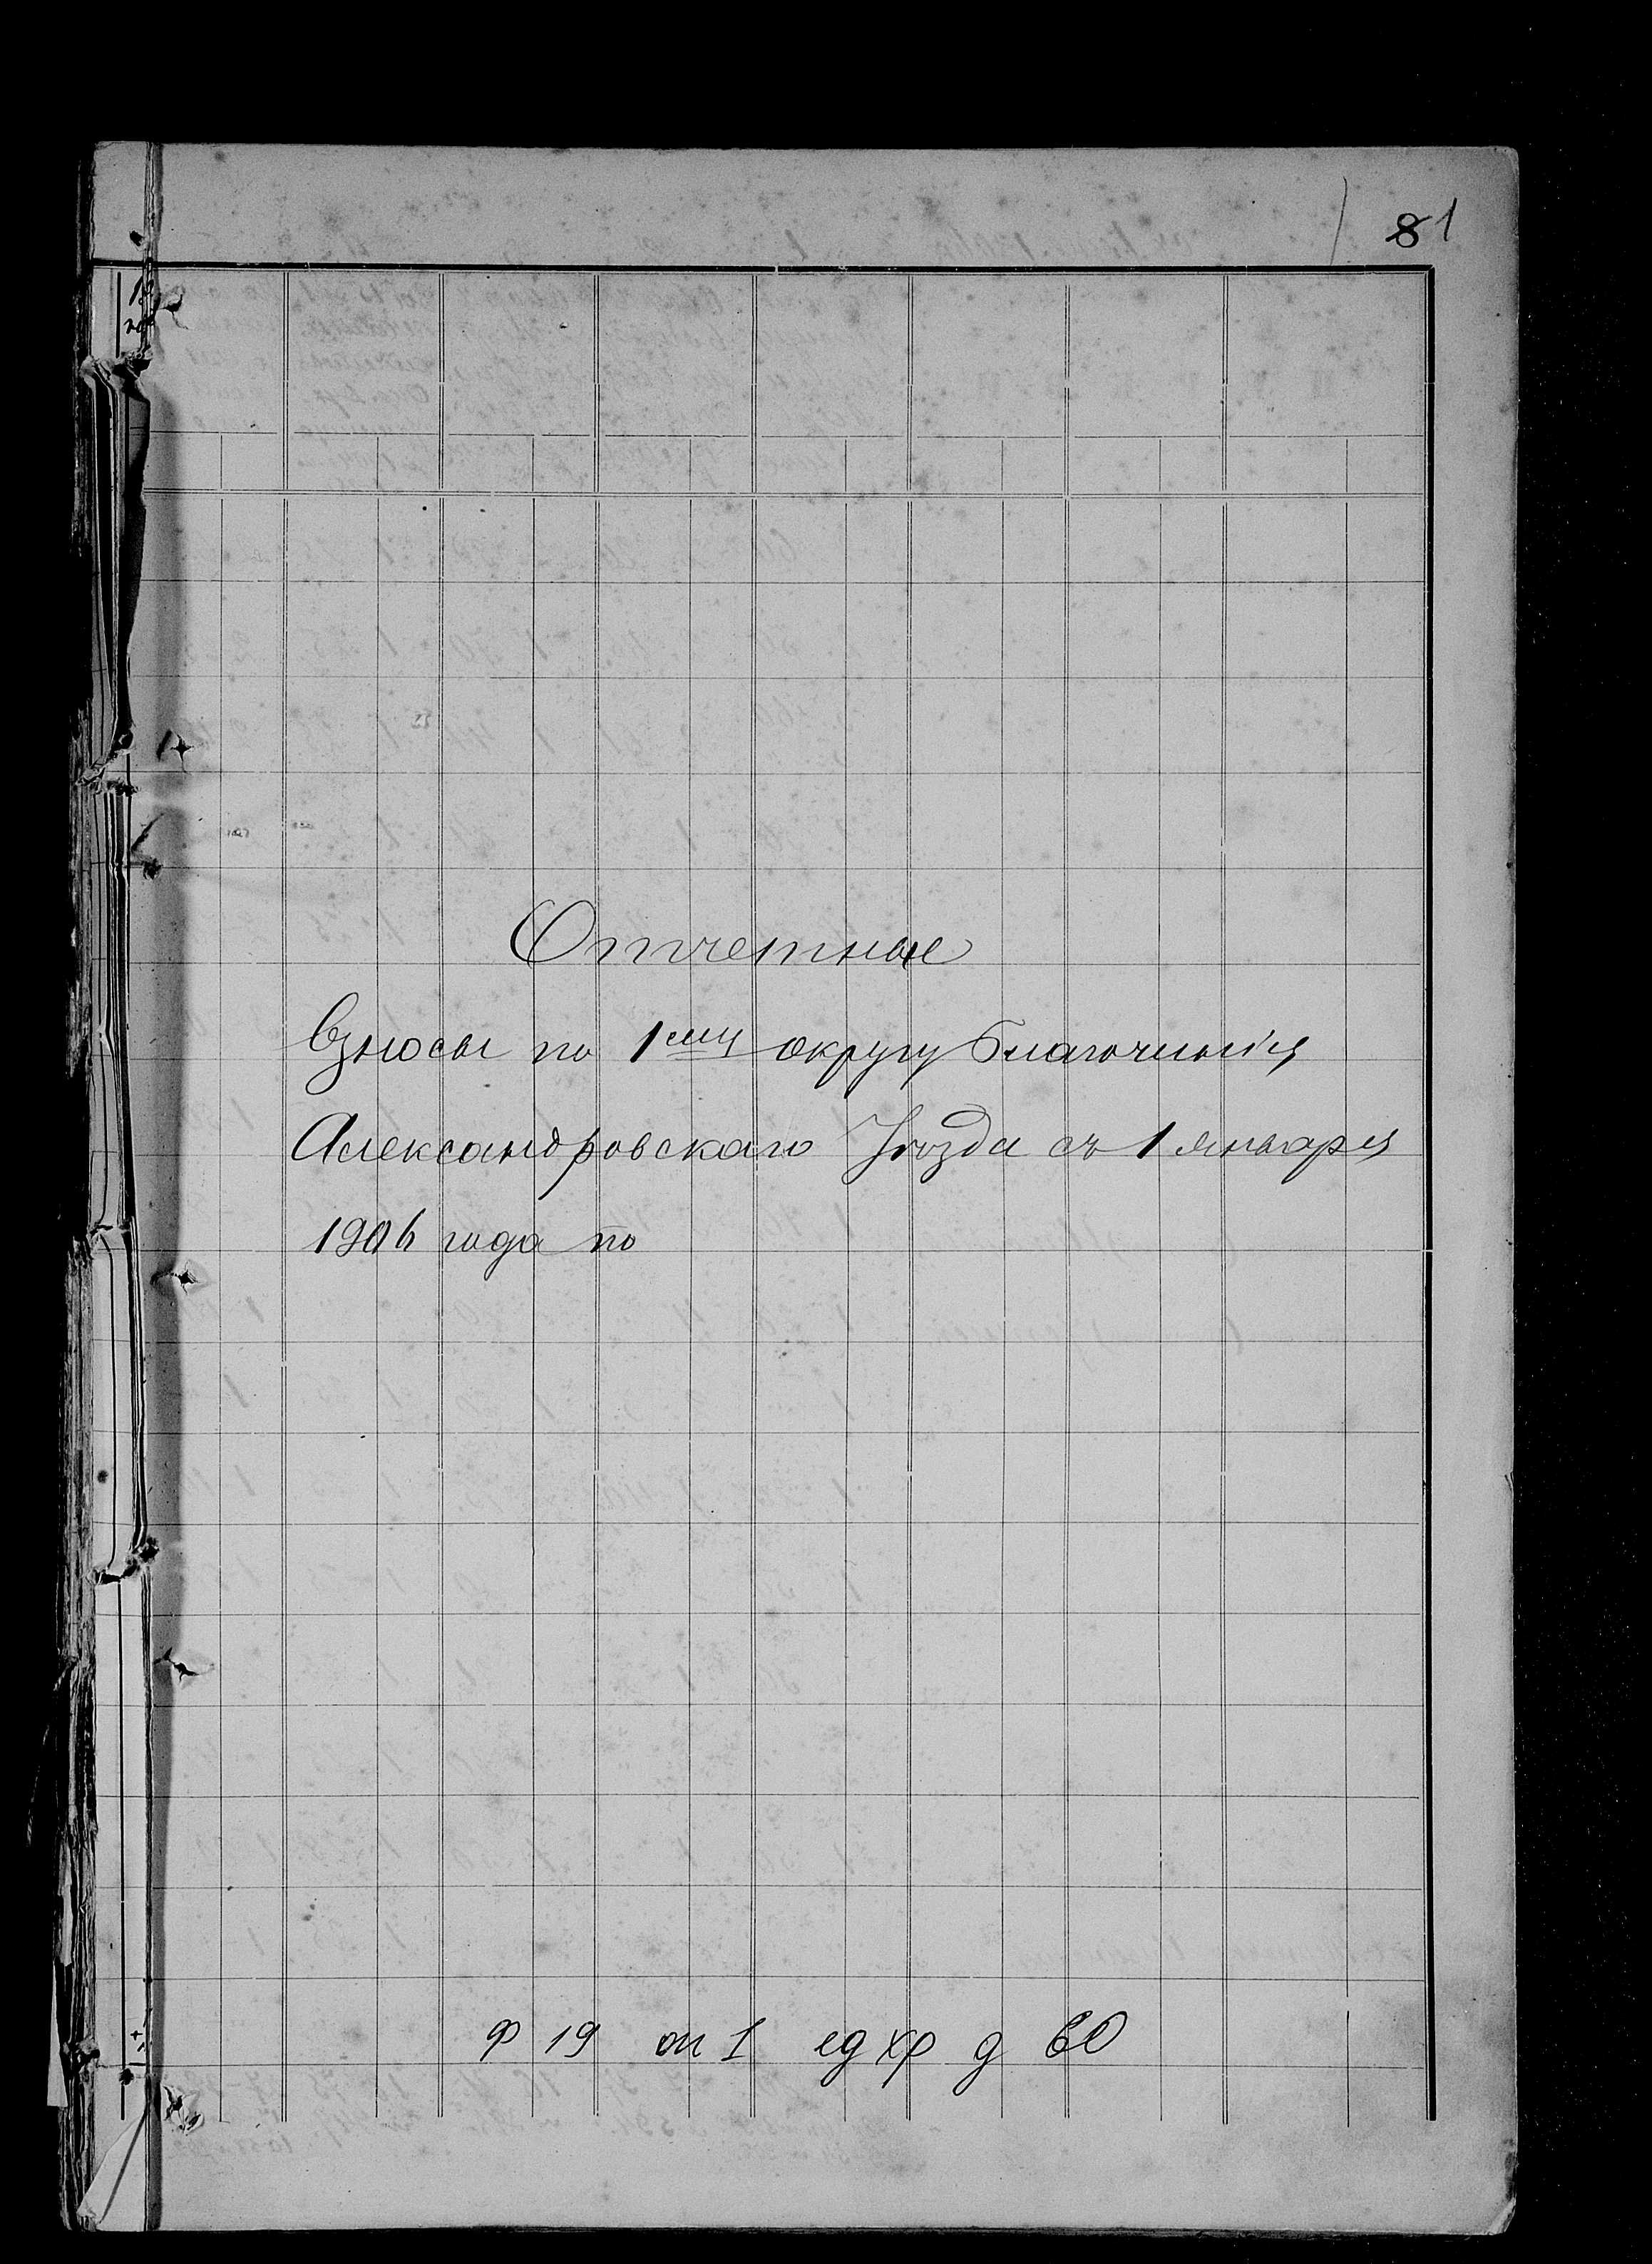 81
Отчетные
Взносы по 1му округу Благочинія
Александровскаго Уѣзда съ 1 января
1906 года по
Ф 19 оп 1 ед хр д 60